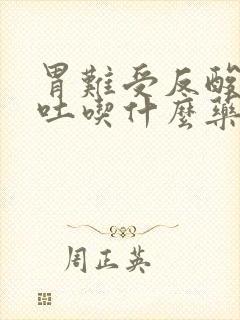 胃難受反酸
吐喫什麼藥
周正英